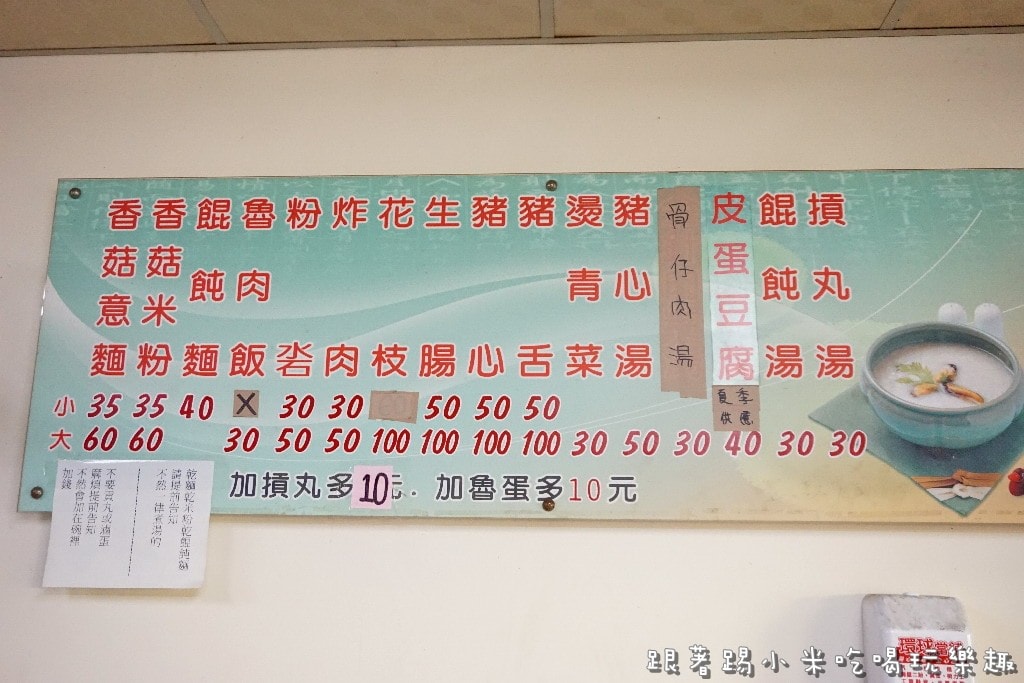 香菇意麵
香菇米粉
餛飩麵
魯肉飯
粉
炸肉
花枝
生腸
豬心
豬舌
燙青菜
豬心湯
骨仔肉湯
皮蛋豆腐
夏季供應
餛飩湯
摃丸湯
小 35 35 40 X 30 30 50 50 50
大 60 60 30 50 50 100 100 100 100 30 50 30 40 30 30
加摃丸多10元.加魯蛋多10元
乾麵乾米粉乾餛飩麵
請提前告知
不然一律煮湯的
不要貢丸或滷蛋
麻煩提前告知
不然會加在碗裡
加錢
環球當舖
跟著踢小米吃喝玩樂趣